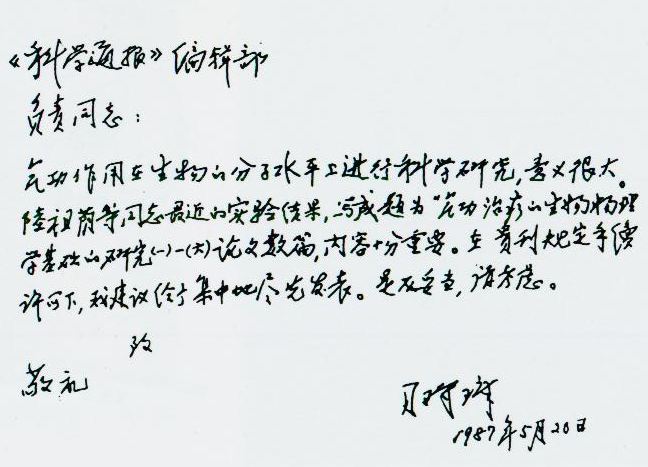 《科学通报》编辑部
负责同志：
气功作用在生物的分子水平上进行科学研究，意义很大。
陆祖荫等同志最近的实验结果，写成题为“气功治疗的生物物理
学基础的研究(一)-(六)论文数篇，内容十分重要。在贵刊规定手续
许可下，我建议给予集中地尽先发表。是否妥当，请考虑。
致
敬礼
贝时璋
1987年5月20日